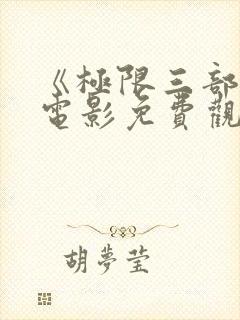 《極限三部
電影免費觀
胡夢瑩